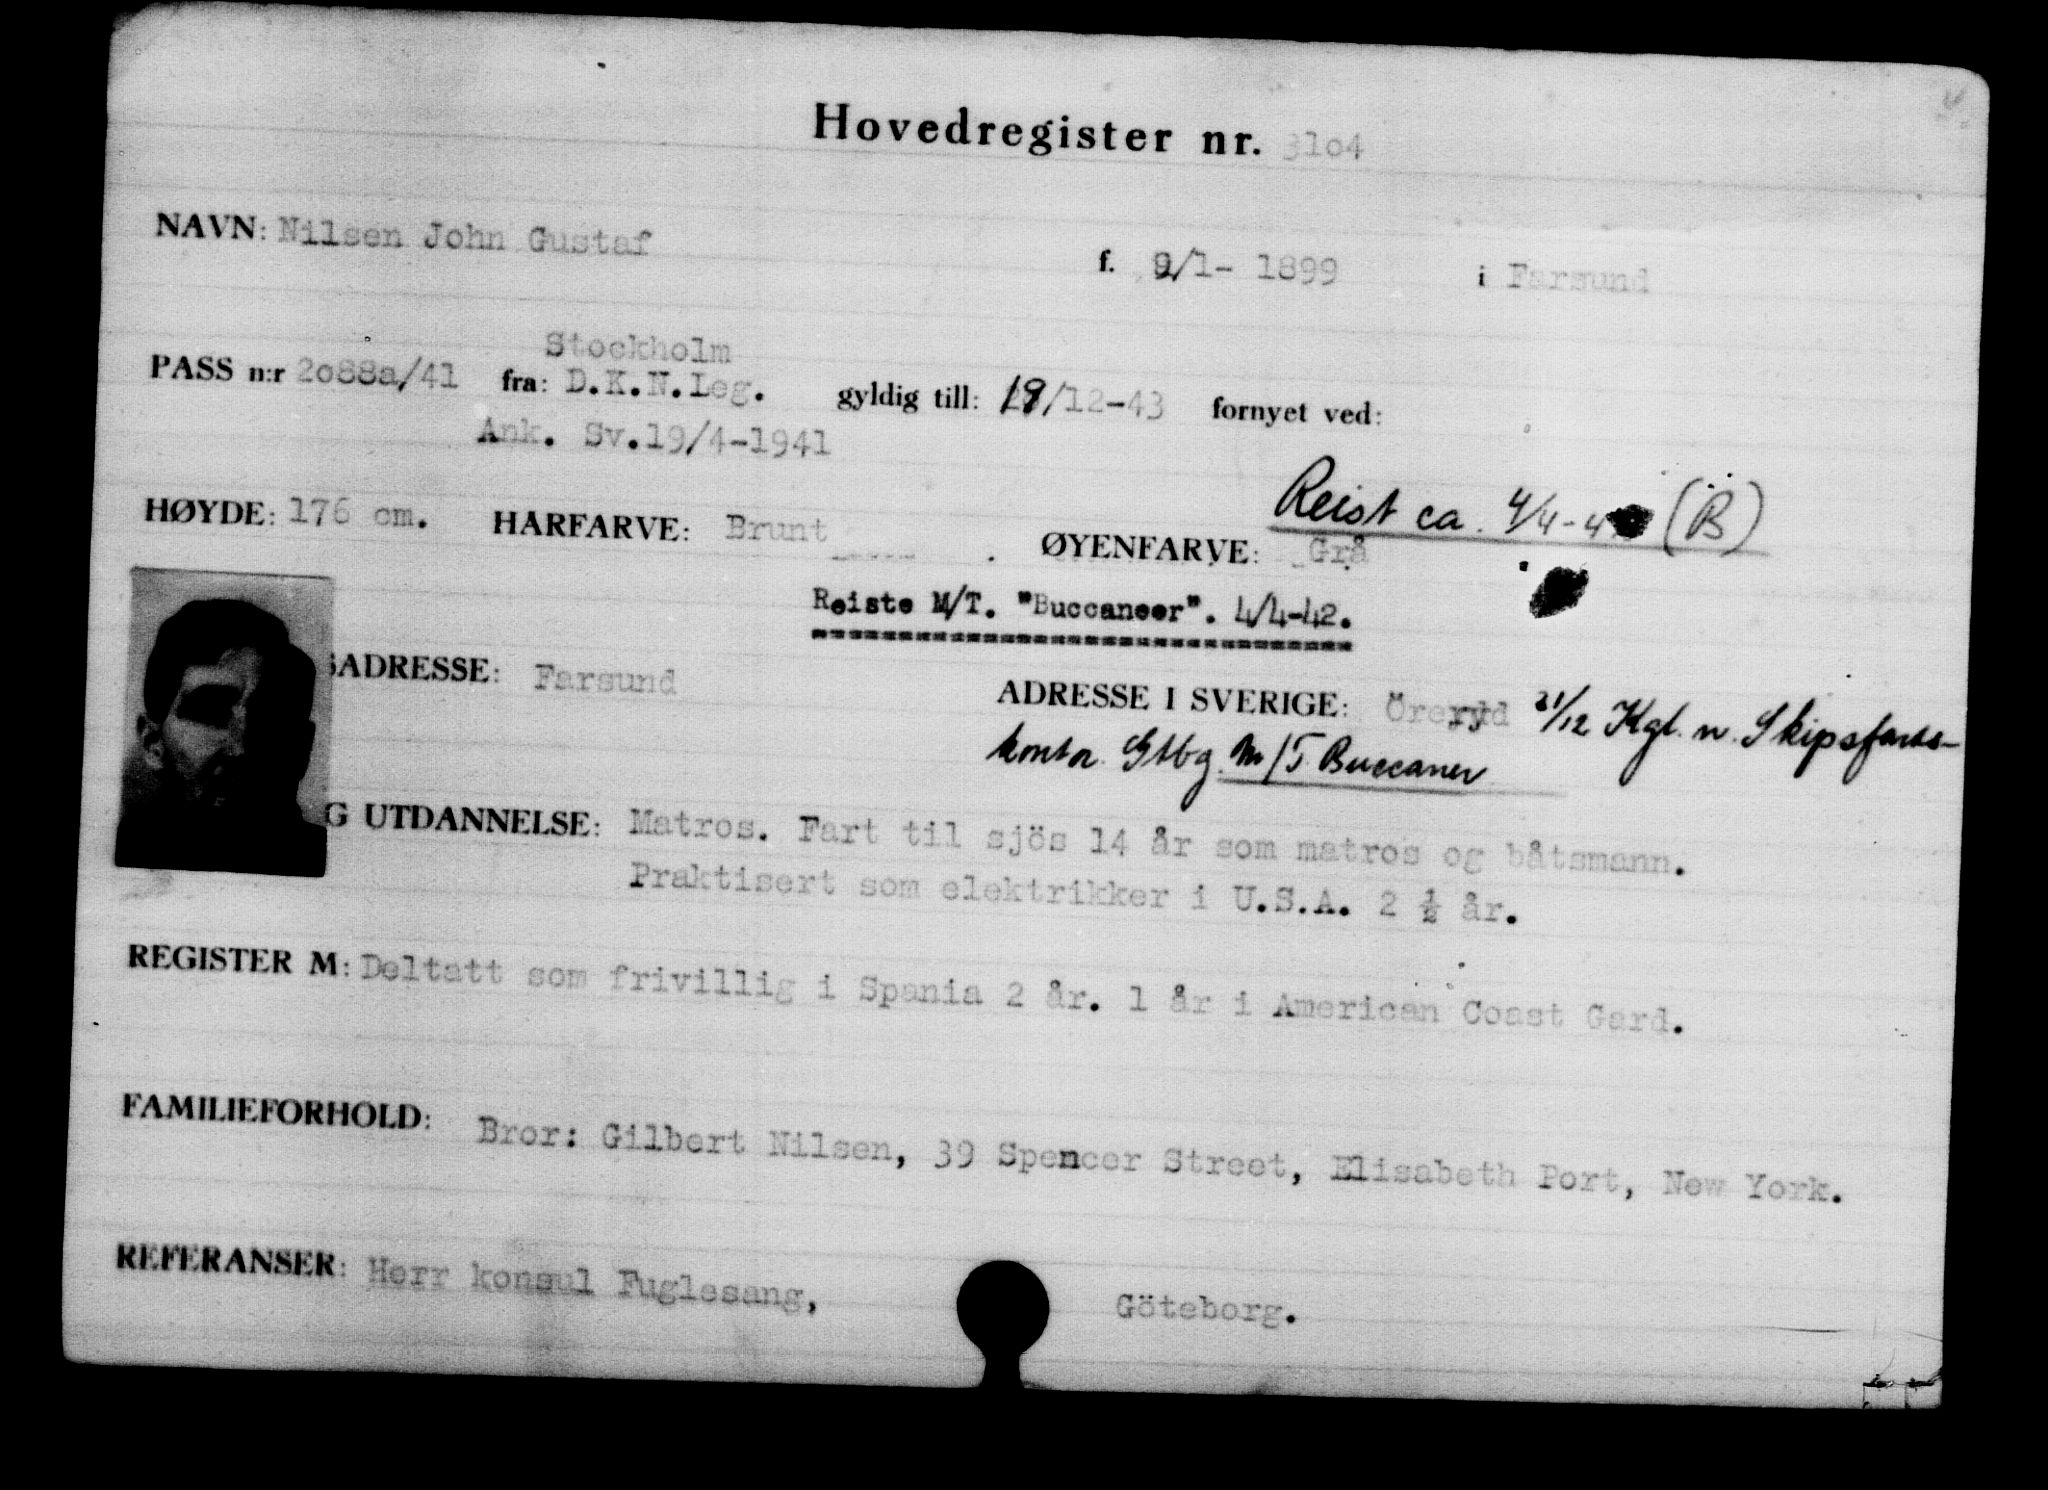 Hovedregister nr. 3104
NAVN: Nilsen John Gustaf
f. 9/1- 1899 i Farsund
Stockholm
PASS n:r 2o88a/41 fra: D.K.N.Leg. gyldig till: 19/12-43 fornyet ved:
Ank. Sv.19/4-1941
Reist ca. 4/4-4 (B)
HØYDE: 176 cm. HÅRFARVE: Brunt ØYENFARVE: Grå
Reiste M/T. "Buccaneer". 4/4-42.
SADRESSE: Farsund
ADRESSE I SVERIGE: Öreryd 21/12 Kgl. n. Skipsfarts-
kontor. Gtbg. M/T Buccaner
G UTDANNELSE: Matros. Fart til sjös 14 år som matros og båtsmann.
Praktisert som elektrikker i U.S.A. 2 ½ år.
REGISTER M: Deltatt som frivillig i Spania 2 år. 1 år i American Coast Gard.
FAMILIEFORHOLD: Bror: Gilbert Nilsen, 39 Spencer Street, Elisabeth Port, New York.
REFERANSER: Herr konsul Fuglesang, Göteborg.